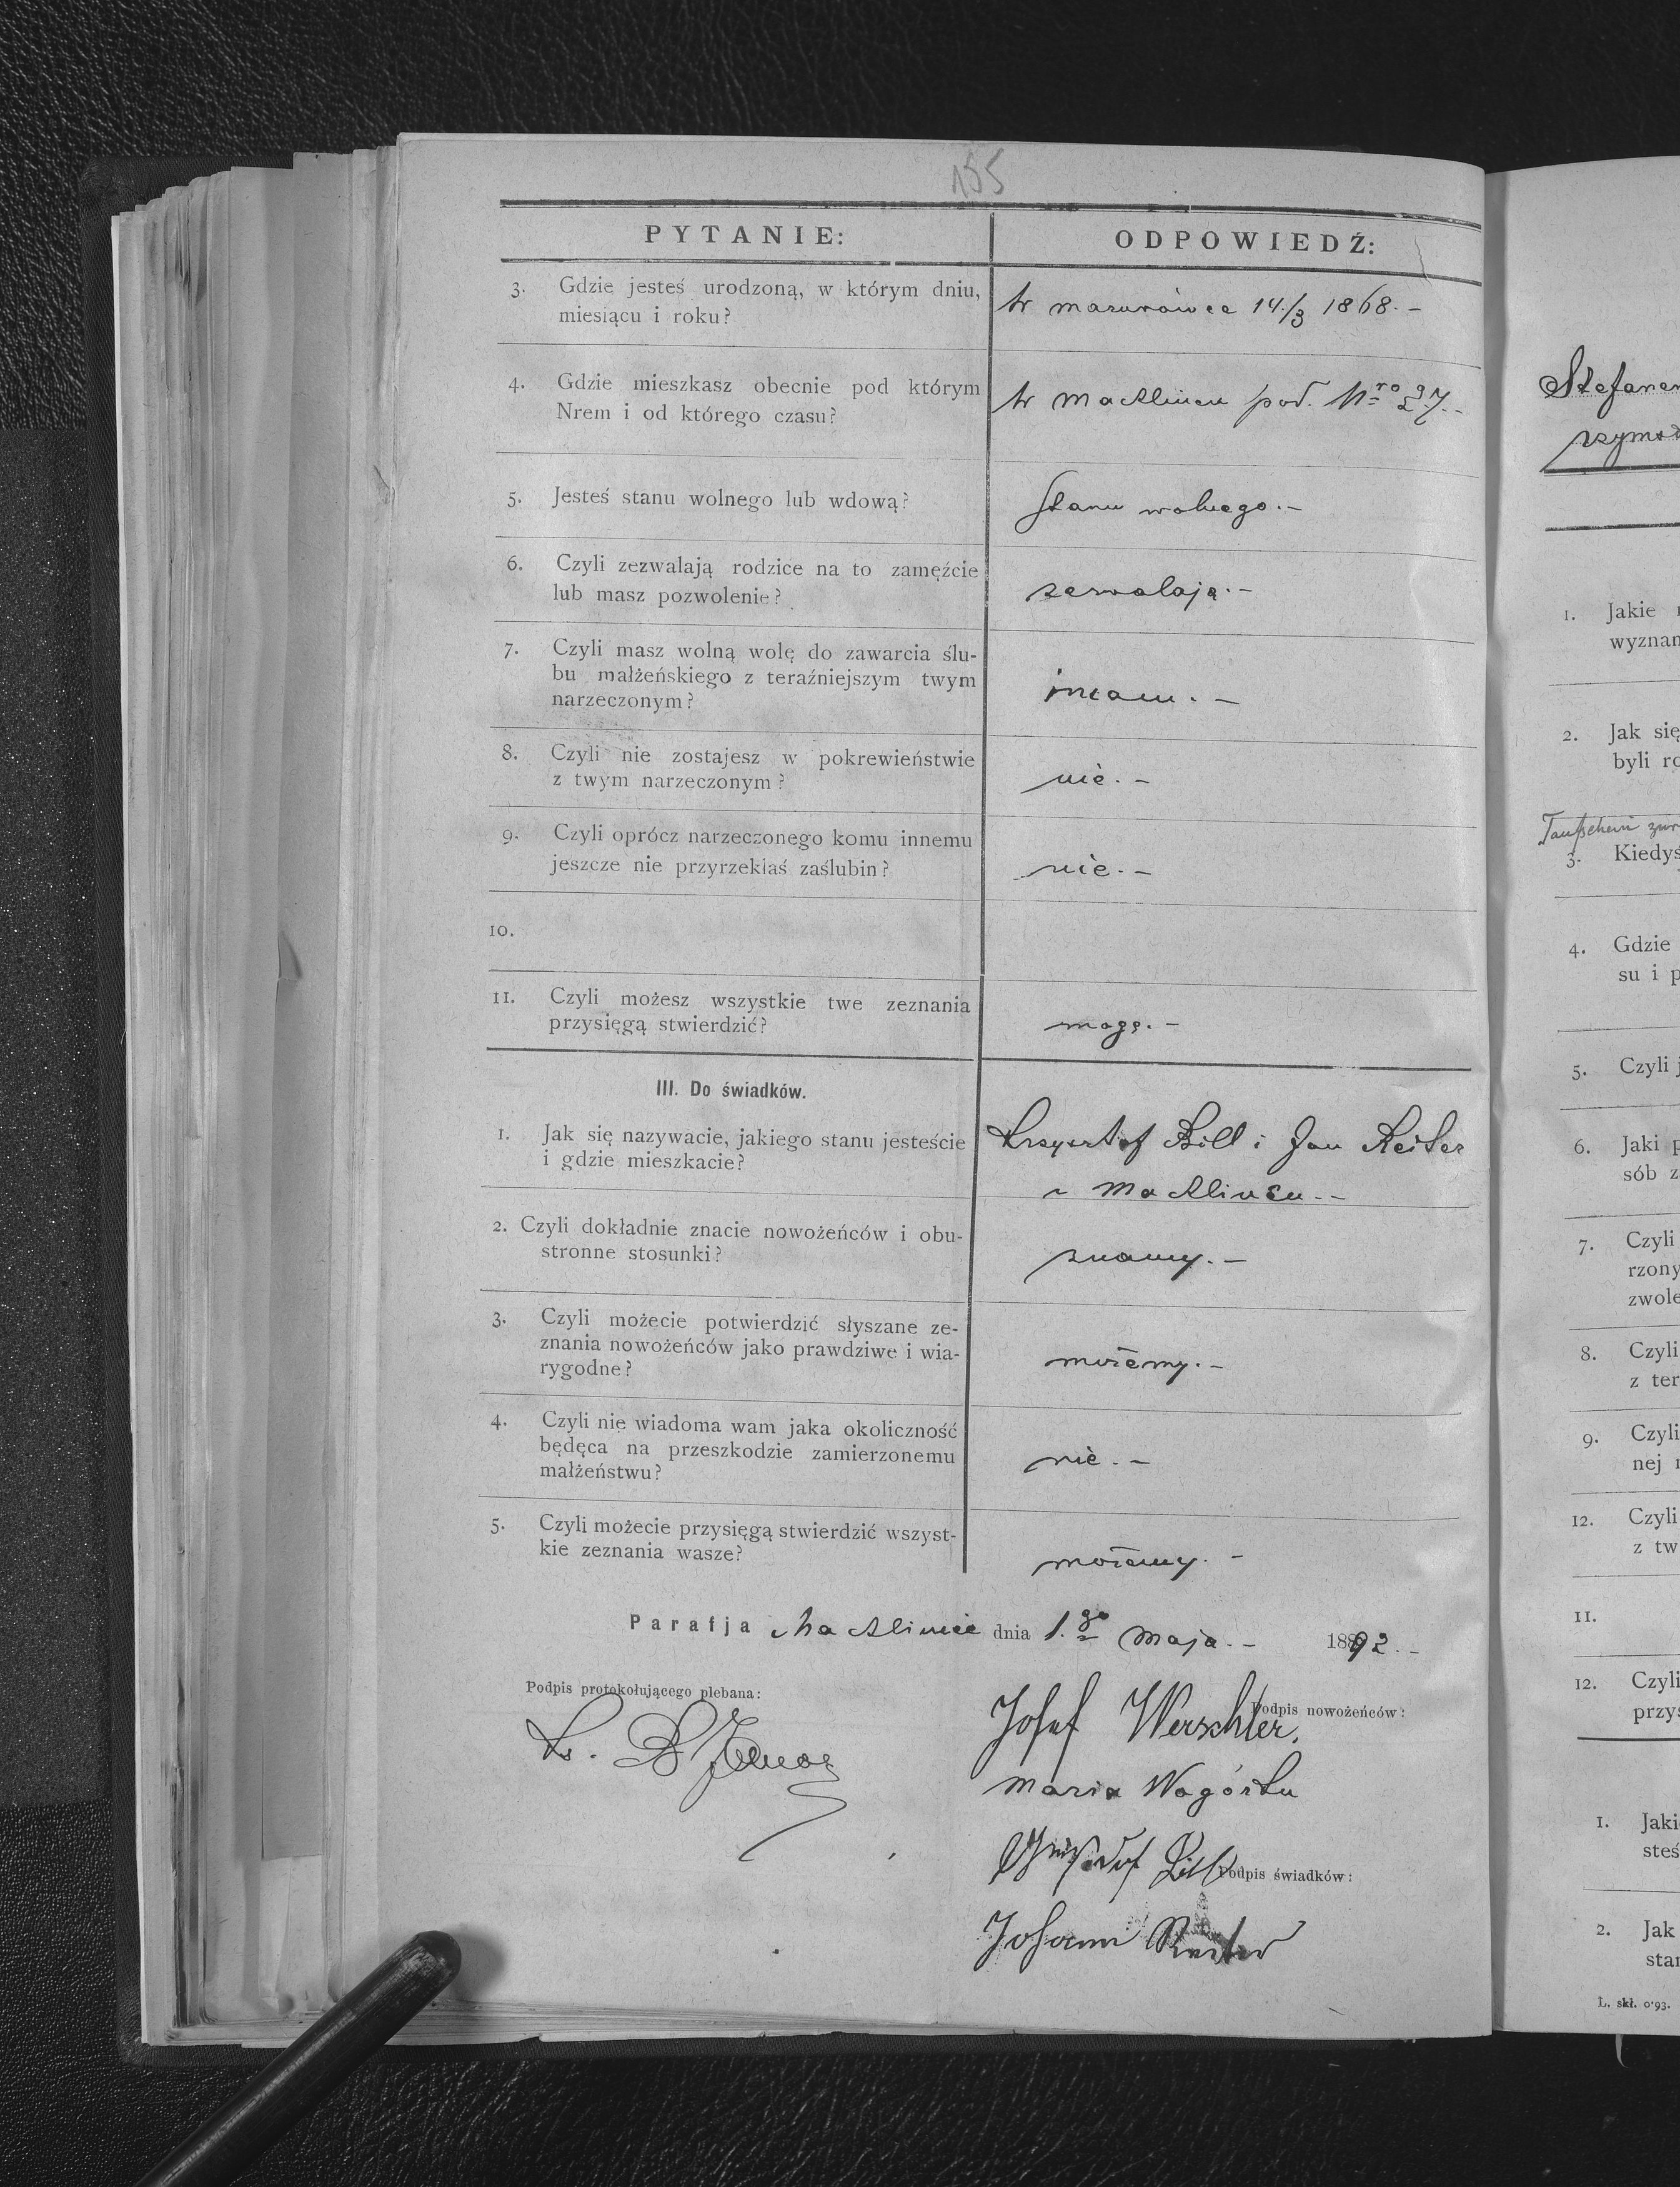 155
PYTANIE:
ODPOWIEDŹ:
3. Gdzie jesteś urodzoną, w którym dniu,
miesiącu i roku?
w mazurówce 14./3 1868. –
4. Gdzie mieszkasz obecnie pod którym
Nrem i od którego czasu?
w Machlińcu pod. Nro 27. –
5. Jesteś stanu wolnego lub wdową?
Stanu wolnego. –
6. Czyli zezwalają rodzice na to zamęźcie
lub masz pozwolenie?
zezwalają. –
7. Czyli masz wolną wolę do zawarcia ślu-
bu małżeńskiego z teraźniejszym twym
narzeczonym?
mam. –
8. Czyli nie zostajesz w pokrewieństwie
z twym narzeczonym?
nie. –
9. Czyli oprócz narzeczonego komu innemu
jeszcze nie przyrzekłaś zaślubin?
nie. –
10.
11. Czyli możesz wszystkie twe zeznania
przysięgą stwierdzić?
mogę. –
III. Do świadków.
1. Jak się nazywacie, jakiego stanu jesteście
i gdzie mieszkacie?
Krzysztof Bill i Jan Reiter
z Machlińca. –
2. Czyli dokładnie znacie nowożeńców i obu-
stronne stosunki?
znamy. –
3. Czyli możecie potwierdzić słyszane ze-
znania nowożeńców jako prawdziwe i wia-
rygodne?
możemy. –
4. Czyli nie wiadoma wam jaka okoliczność
będęca na przeszkodzie zamierzonemu
małżeństwu?
nie. –
5. Czyli możecie przysięgą stwierdzić wszyst-
kie zeznania wasze?
możemy. –
Parafja Machliniec dnia 1.go Maja. – 1892. –
Podpis protokołującego plebana:
Podpis nowożeńców:
Josef Werschler.
Maria Wogórka
Podpis świadków:
Johann Reiter
Stefanem
rzyms
1. Jakie
wyznan
2. Jak się
byli ro
Taufschein zur
3. Kiedyś
4. Gdzie
su i p
5. Czyli j
6. Jaki p
sób z
7. Czyli
rzony
zwole
8. Czyli
z ter
9. Czyli
nej
12. Czyli
z tw
11.
12. Czyli
przys
1. Jaki
steś
2. Jak
star
L. skł. 0·93.